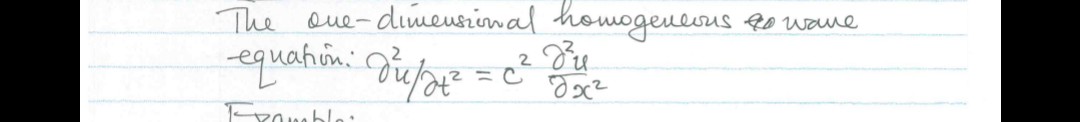 The one-dimensional homogeneous wave
equation: ∂²u/∂t² = c² ∂²u/∂x²
Example: